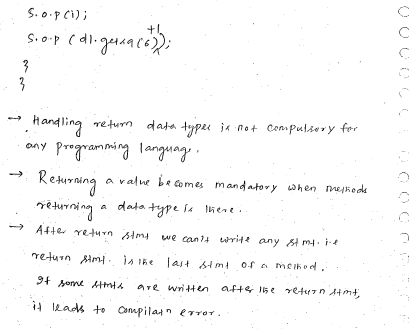 S.o.p(i);
S.o.p (d1.getsq(6)+1);
}
}
→ Handling return data types is not compulsory for
any programming language.
→ Returning a value becomes mandatory when methods
returning a datatype is there.
→ After return stmt we can't write any stmt. i.e
return stmt. is the last stmt of a method.
If some stmts are written after the return stmt,
it leads to compilatn error.